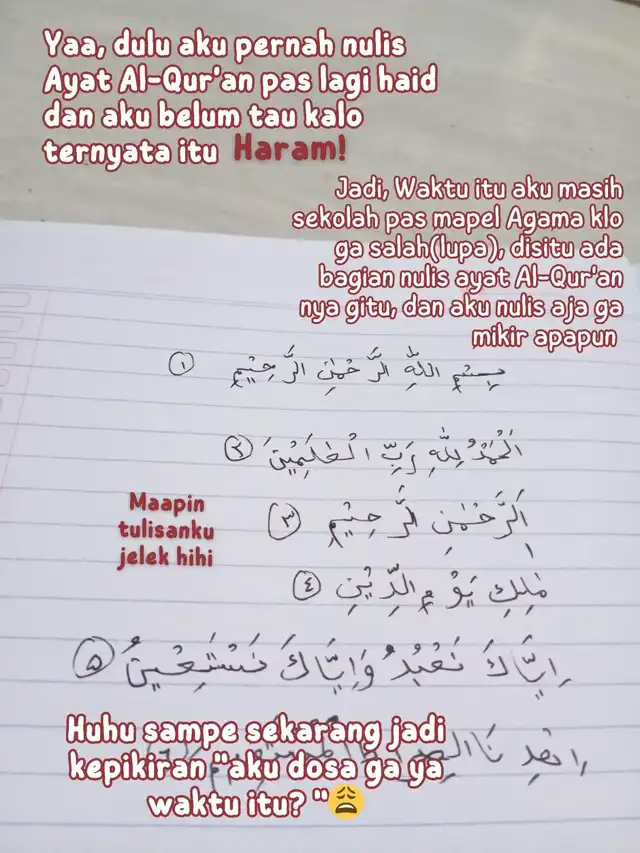 Yaa, dulu aku pernah nulis
Ayat Al-Qur'an pas lagi haid
dan aku belum tau kalo
ternyata itu Haram!
Jadi, Waktu itu aku masih
sekolah pas mapel Agama klo
ga salah(lupa), disitu ada
bagian nulis ayat Al-Qur'an
nya gitu, dan aku nulis aja ga
mikir apapun
بِسْمِ اللّٰهِ الرَّحْمٰنِ الرَّحِيْمِ ١
اَلْحَمْدُ لِلّٰهِ رَبِّ الْعٰلَمِيْنَ ٢
اَلرَّحْمٰنِ الرَّحِيْمِ ٣
مٰلِكِ يَوْمِ الدِّيْنِ ٤
اِيَّاكَ نَعْبُدُ وَاِيَّاكَ نَسْتَعِيْنُ ٥
Maapin
tulisanku
jelek hihi
اِهْدِنَا
Huhu sampe sekarang jadi
kepikiran "aku dosa ga ya
waktu itu? "😩